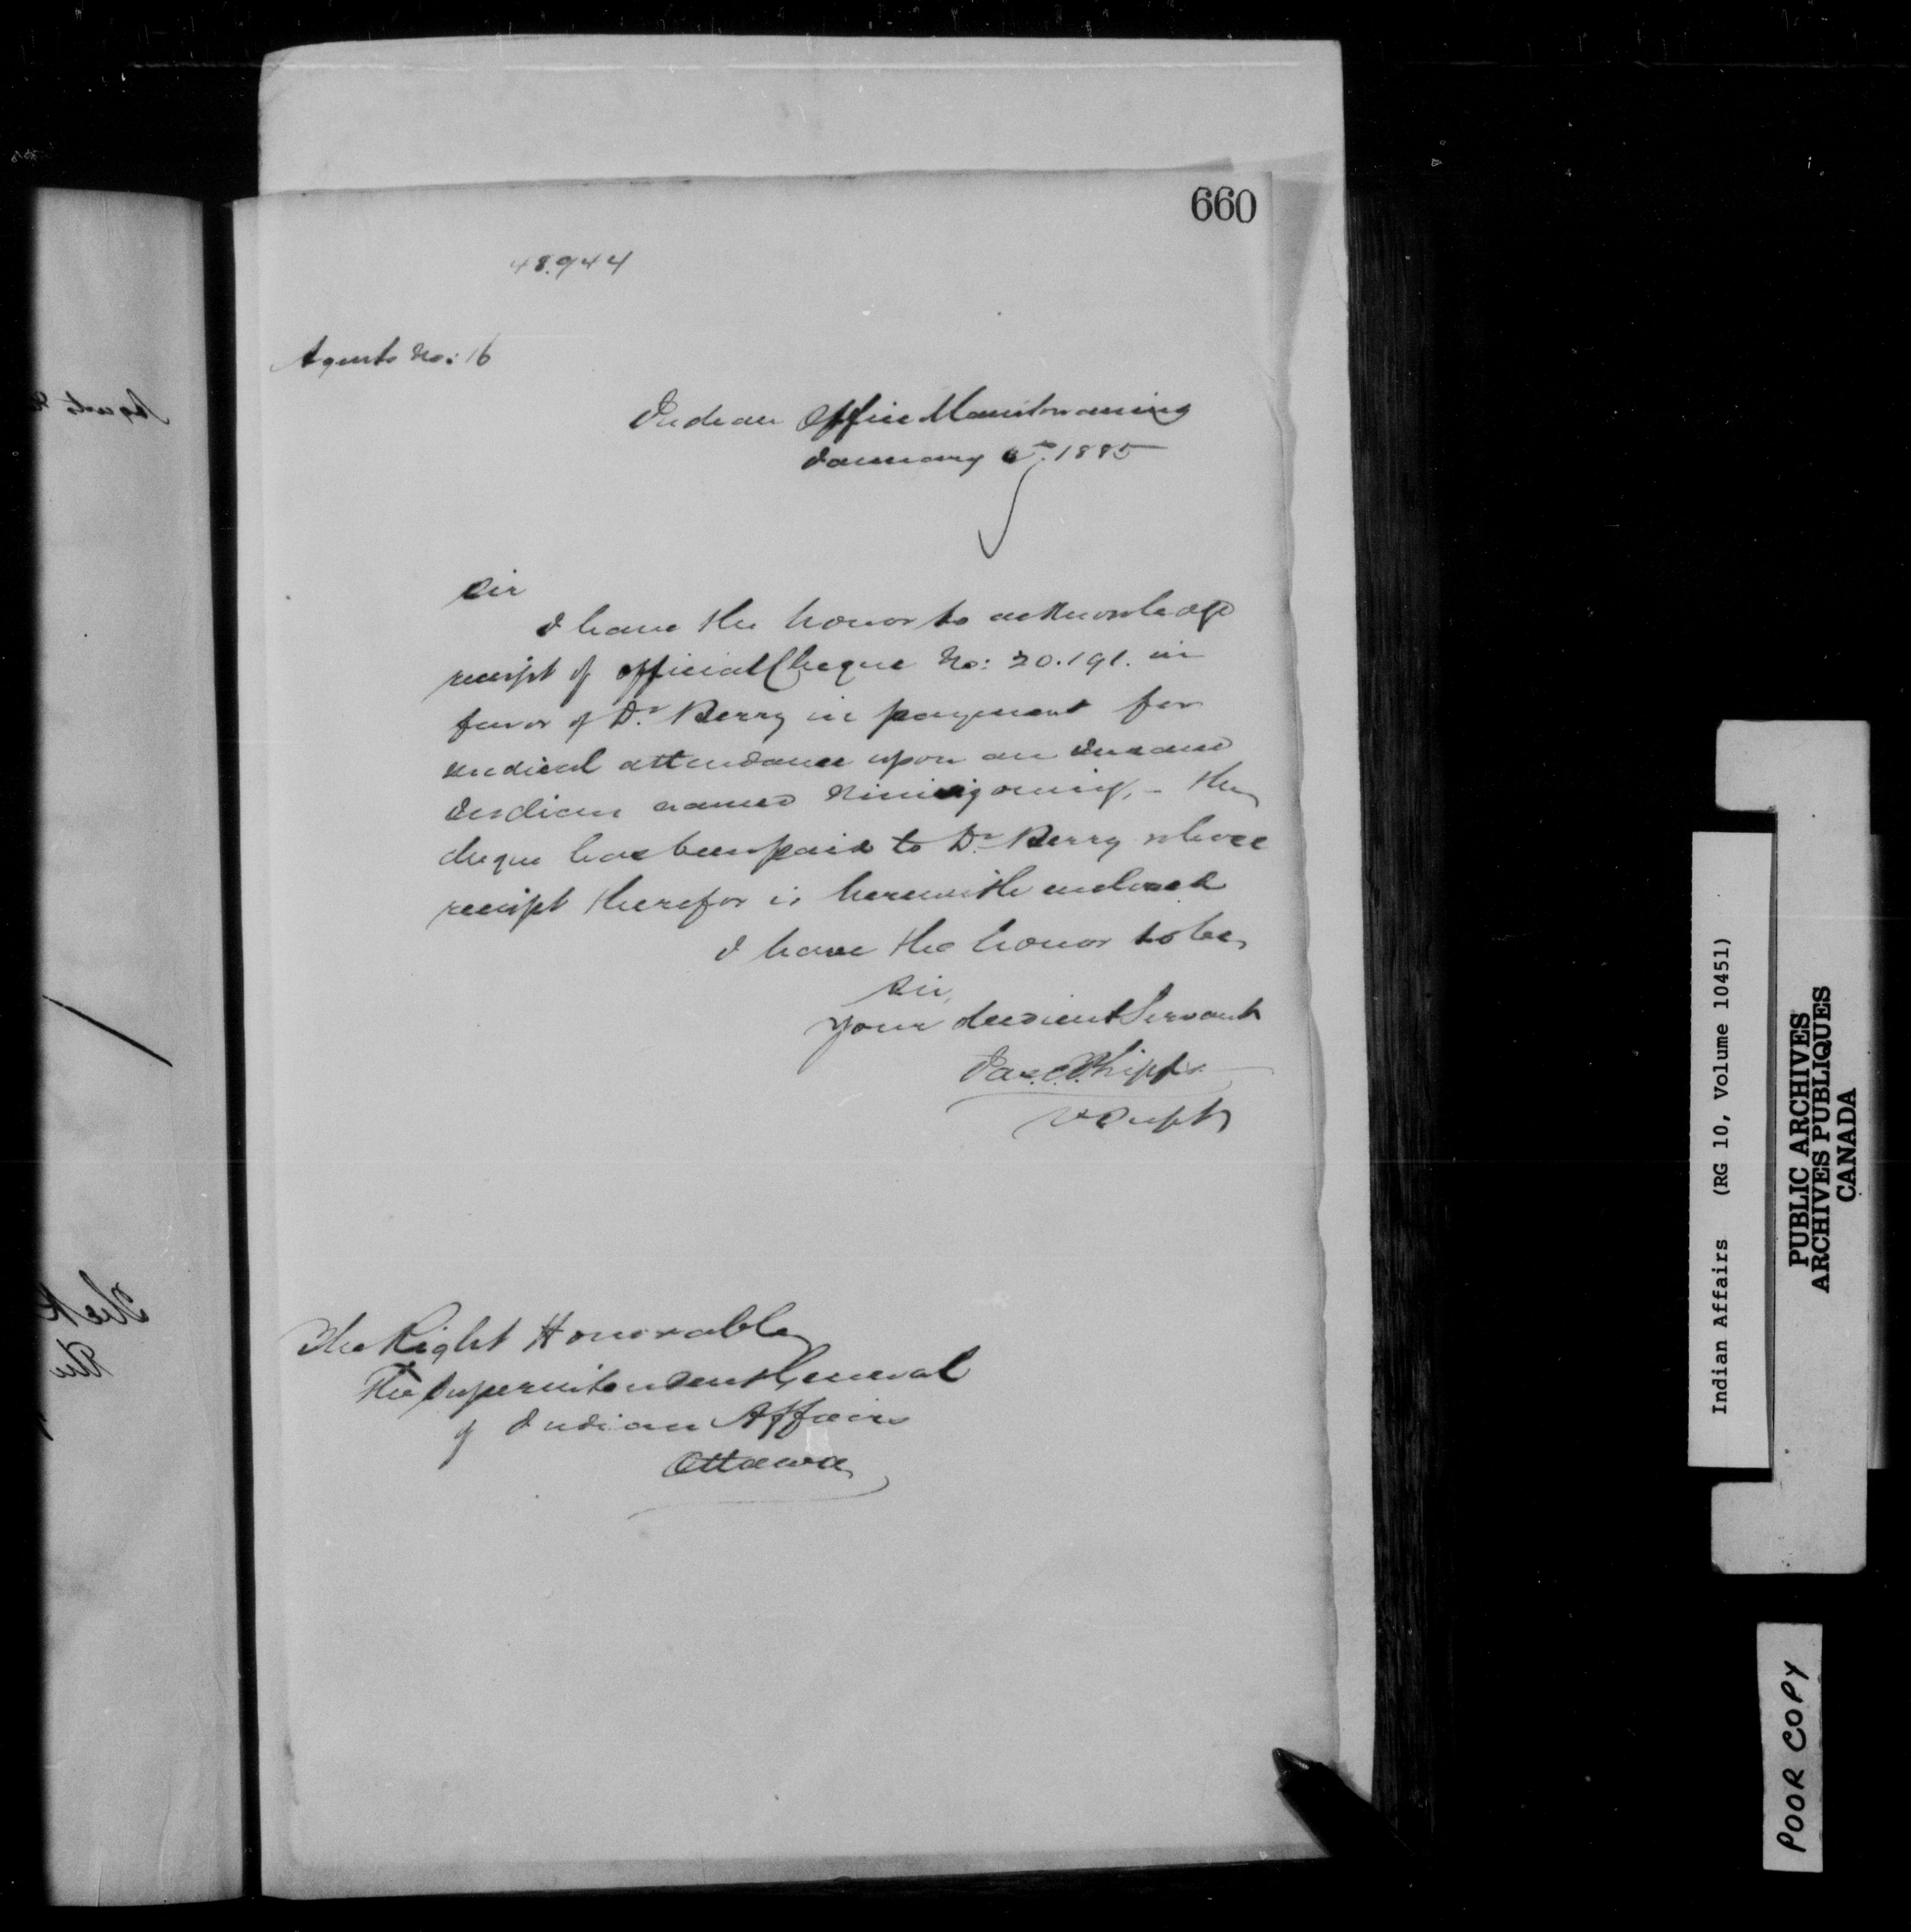 660
48.944
Agents No: 16
Indian Office Manitowaning
January 1885
Sir
I have the honor to acknowledge
receipt of official Cheque No: 20.191. in
favor of Dr Berry in payment for
medical attendance upon an Insane
Indian named - the
cheque has been paid to Dr Berry whose
receipt therefor is herewith enclosed
I have the honor to be,
Sir,
Your obedient Servant
Jas. C. Phipps
V Supt
The Right Honorable
The Superintendent General
of Indian Affairs
Ottawa
Indian Affairs (RG 10, Volume 10451)
PUBLIC ARCHIVES
ARCHIVES PUBLIQUES
CANADA
POOR COPY